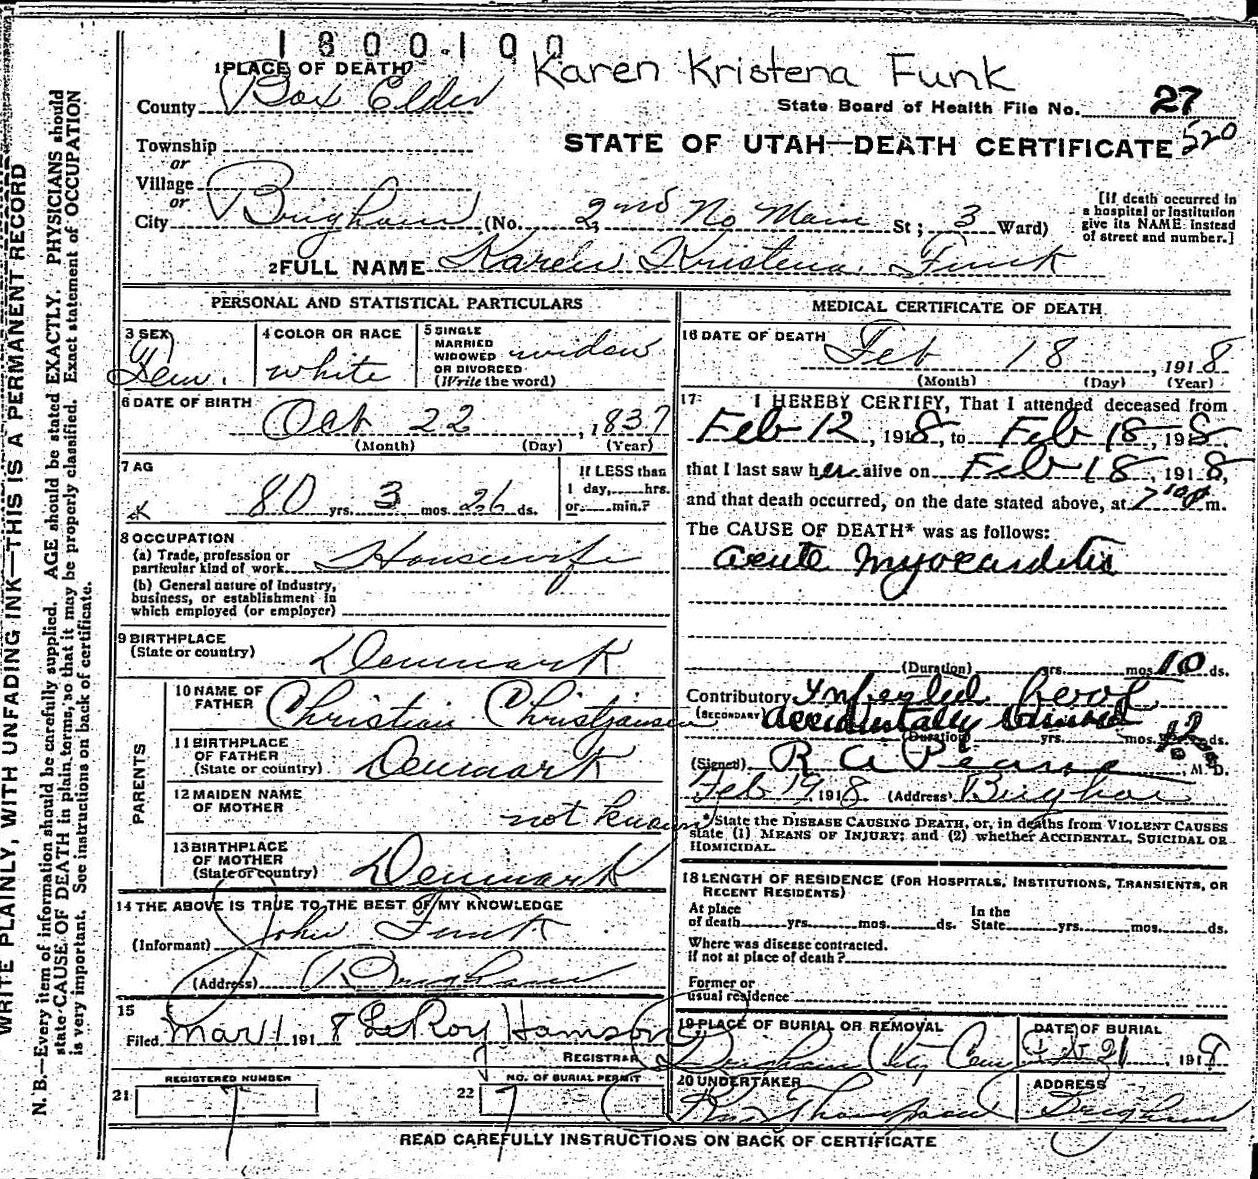 1800100
Karen Kristena Funk
1 PLACE OF DEATH
County Box Elder
State Board of Health File No. 27
520
STATE OF UTAH—DEATH CERTIFICATE
Township
or
Village
or
City Brigham (No. 2nd No Main St; 3 Ward)
[If death occurred in a hospital or institution give its NAME instead of street and number.]
2 FULL NAME Karen Kristena Funk
PERSONAL AND STATISTICAL PARTICULARS
3 SEX
Fem.
4 COLOR OR RACE
white
5 SINGLE
MARRIED
WIDOWED
OR DIVORCED
(Write the word)
widow
6 DATE OF BIRTH
Oct 22, 1837
(Month) (Day) (Year)
7 AG
80 yrs. 3 mos. 26 ds.
If LESS than
1 day,......hrs.
or......min.?
8 OCCUPATION
(a) Trade, profession or
particular kind of work. Housewife
(b) General nature of Industry,
business, or establishment in
which employed (or employer)
9 BIRTHPLACE
(State or country) Denmark
PARENTS
10 NAME OF
FATHER Christian Christjansen
11 BIRTHPLACE
OF FATHER
(State or country) Denmark
12 MAIDEN NAME
OF MOTHER not known
13 BIRTHPLACE
OF MOTHER
(State or country) Denmark
14 THE ABOVE IS TRUE TO THE BEST OF MY KNOWLEDGE
(Informant) John Funk
(Address) Brigham
15
Filed Mar 1 1918 LeRoy Hamson
REGISTRAR
REGISTERED NUMBER
21 7
NO. OF BURIAL PERMIT
22 7
MEDICAL CERTIFICATE OF DEATH
16 DATE OF DEATH
Feb 18, 1918
(Month) (Day) (Year)
17 I HEREBY CERTIFY, That I attended deceased from
Feb 12, 1918, to Feb 18, 1918
that I last saw her alive on Feb 18, 1918,
and that death occurred, on the date stated above, at 7 m.
The CAUSE OF DEATH* was as follows:
acute myocarditis
(Duration) yrs. mos. 10 ds.
Contributory Infected foot
(SECONDARY) accidentally burned
(Duration) yrs. mos. ds.
(Signed) R A Pearse, M. D.
Feb 19, 1918 (Address) Brigham
*State the DISEASE CAUSING DEATH, or, in deaths from VIOLENT CAUSES
state (1) MEANS OF INJURY; and (2) whether ACCIDENTAL, SUICIDAL OR
HOMICIDAL.
18 LENGTH OF RESIDENCE (FOR HOSPITALS, INSTITUTIONS, TRANSIENTS, OR
RECENT RESIDENTS)
At place
of death......yrs......mos......ds.
In the
State......yrs......mos......ds.
Where was disease contracted.
if not at place of death?
Former or
usual residence
19 PLACE OF BURIAL OR REMOVAL
Brigham City Cem
DATE OF BURIAL
Feb 21 1918
20 UNDERTAKER
Thompson
ADDRESS
Brigham
READ CAREFULLY INSTRUCTIONS ON BACK OF CERTIFICATE
WRITE PLAINLY, WITH UNFADING INK—THIS IS A PERMANENT RECORD
N. B.—Every item of information should be carefully supplied. AGE should be stated EXACTLY. PHYSICIANS should
state CAUSE OF DEATH in plain terms, so that it may be properly classified. Exact statement of OCCUPATION
is very important. See instructions on back of certificate.